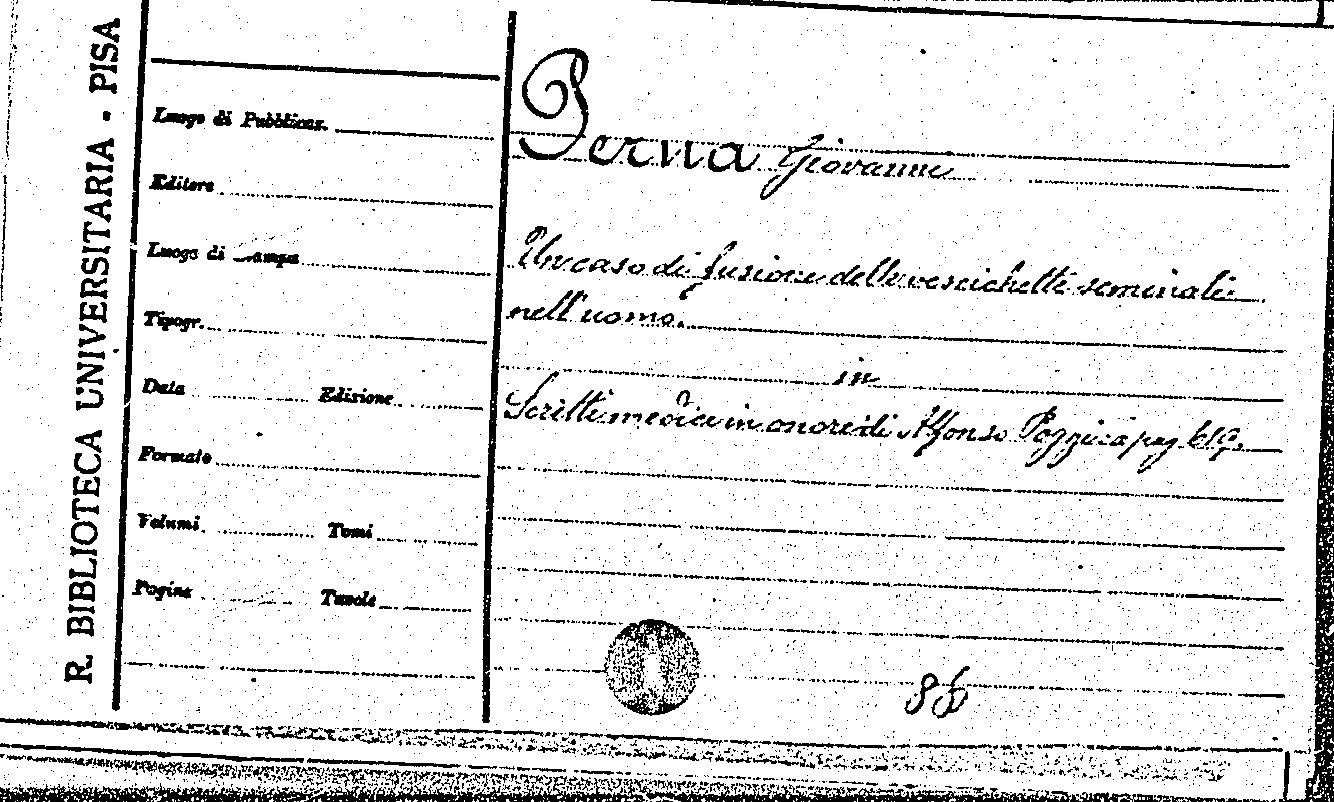 R. BIBLIOTECA UNIVERSITARIA - PISA
Luogo di Pubblicaz.
Editore
Luogo di Stampa
Tipogr.
Data Edizione
Formato
Volumi Tomi
Pagine Tavole
Perna Giovanni
Un caso di fusione delle vescichette seminali
nell'uomo.
in
Scritti medici in onore di Alfonso Poggi a pag 619.